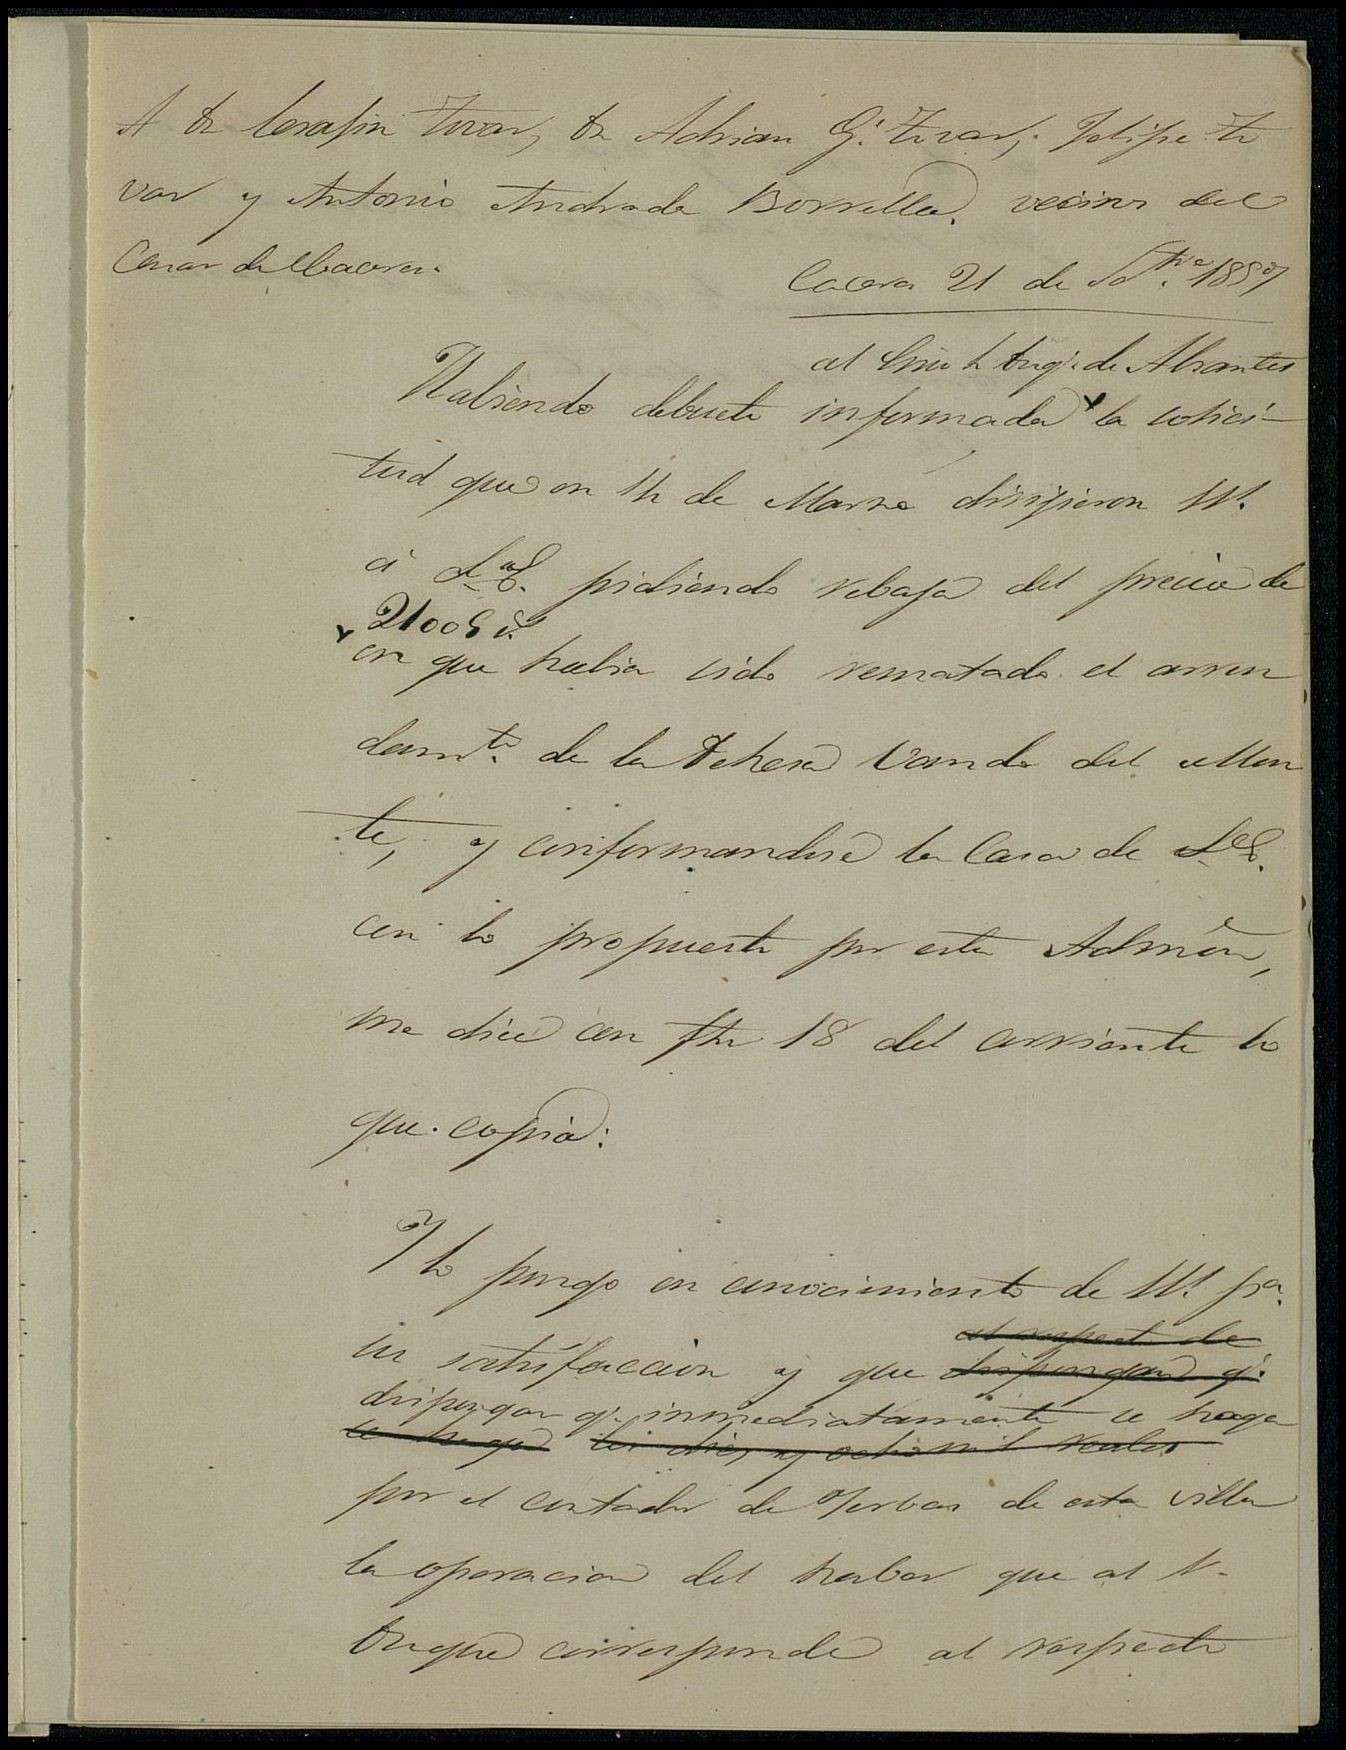 A Dn Serafin Tovar, Dn Adrian G. Tovar, Felipe To
var y Antonio Andrada Borrella. vecinos del
Casar de Caceres.
Caceres 21 de 1857
al Duque de Abrantes
Habiendo debuelto informada la solici-
tud que en 14 de Marzo dirigieron VV.
á S.E. pidiendo rebaja del precio de
21005 r.
en que habia sido rematado el arren
damto. de la Dehesa Canda del Mon
te, y conformandose la Casa de S.E.
con lo propuesto por esta Admon,
me dice con fha 18 del corriente lo
que copio:
Y lo pongo en conocimiento de VV. pa.
su satisfaccion y que dispongan q.
al respecto de
dispongan q. inmediatamente se haga
se haga diez y ocho mil reales
por el contador de Yerbas de esta villa
la operacion del haber que al S.
Duque corresponde al respecto